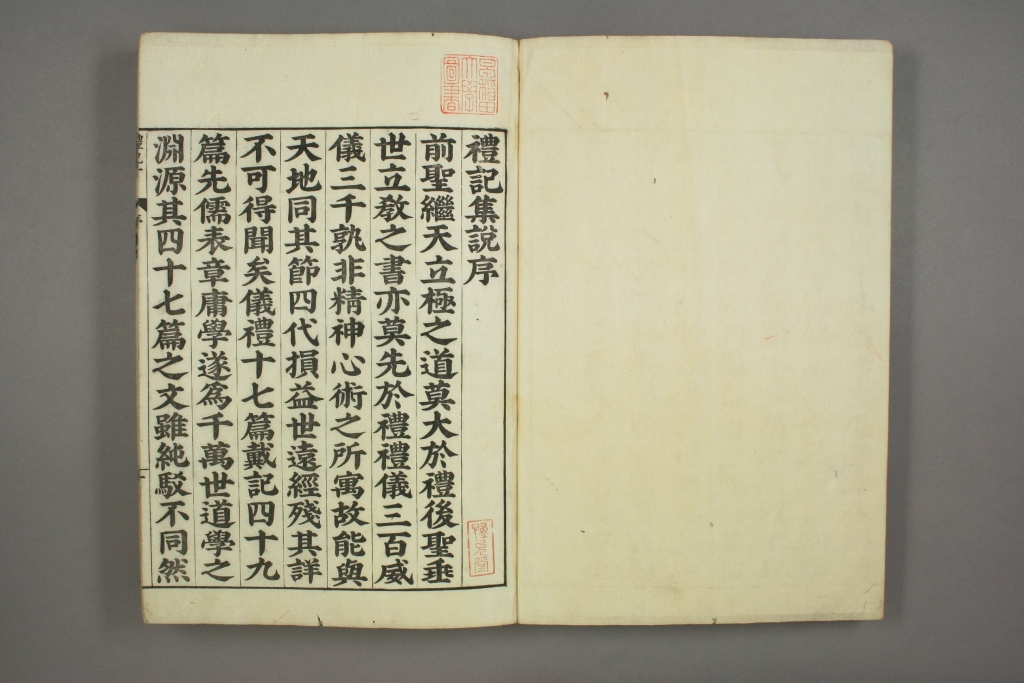 禮記集說序
前聖繼天立極之道莫大於禮後聖垂
世立教之書亦莫先於禮禮儀三百威
儀三千孰非精神心術之所寓故能與
天地同其節四代損益世遠經殘其詳
不可得聞矣儀禮十七篇戴記四十九
篇先儒表章庸學遂爲千萬世道學之
淵源其四十七篇之文雖純駁不同然